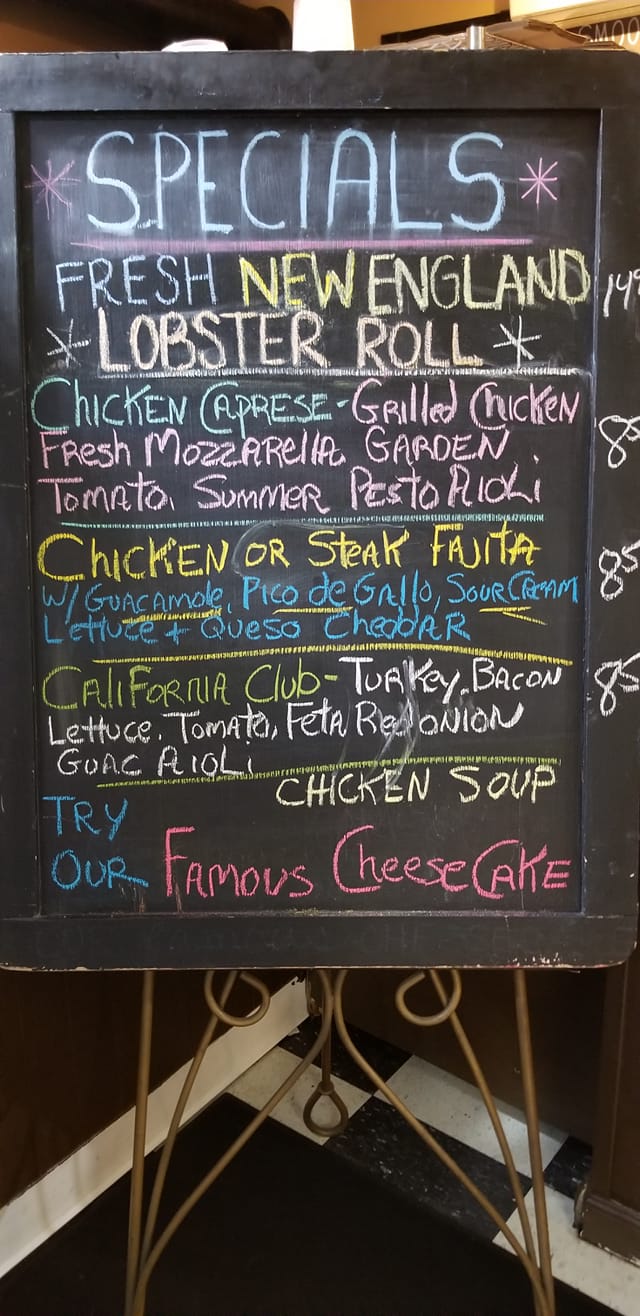 SMOO
* SPECIALS *
FRESH NEW ENGLAND 149
* LOBSTER ROLL *
CHICKEN CAPRESE - GRILLED CHICKEN
FRESH MOZZARELLA, GARDEN 85
TOMATO, SUMMER PESTO AIOLI
CHICKEN OR STEAK FAJITA
W/ GUACAMOLE, PICO de GALLO, SOUR CREAM 85
LETTUCE + QUESO CHEDDAR
CALIFORNIA CLUB - TURKEY, BACON 85
LETTUCE, TOMATO, FETA RED ONION
GUAC AIOLI
CHICKEN SOUP
TRY
OUR FAMOUS CHEESECAKE